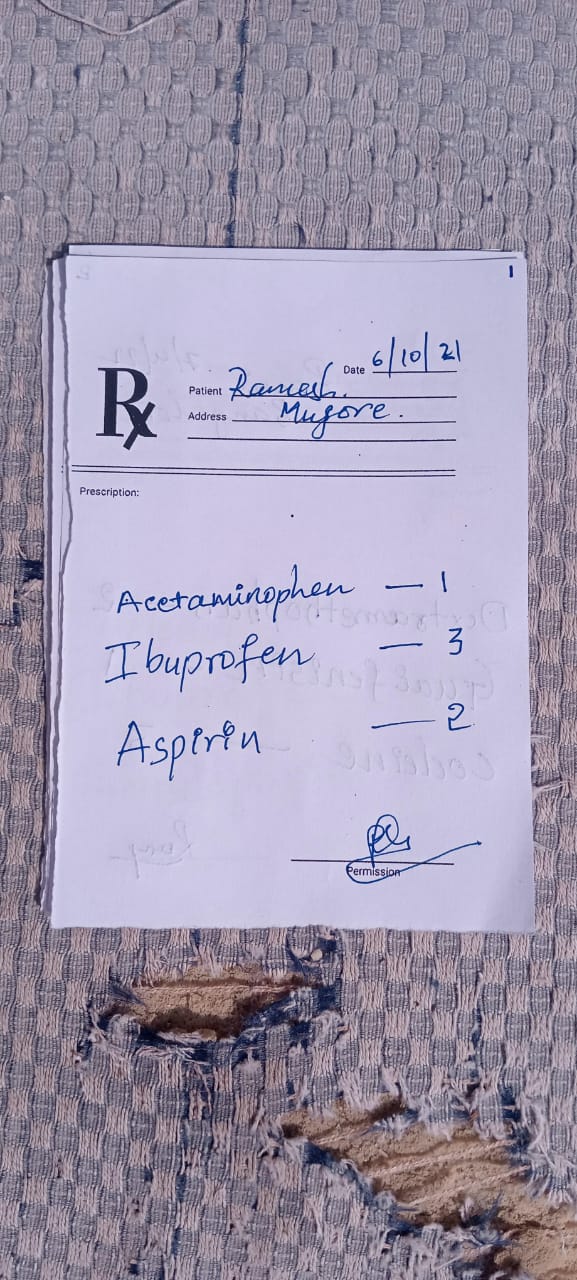 1
Date 6/10/21
Rx
Patient Ramesh.
Address Mysore.
Prescription:
Acetaminophen — 1
Ibuprofen — 3
Aspirin — 2
Permission